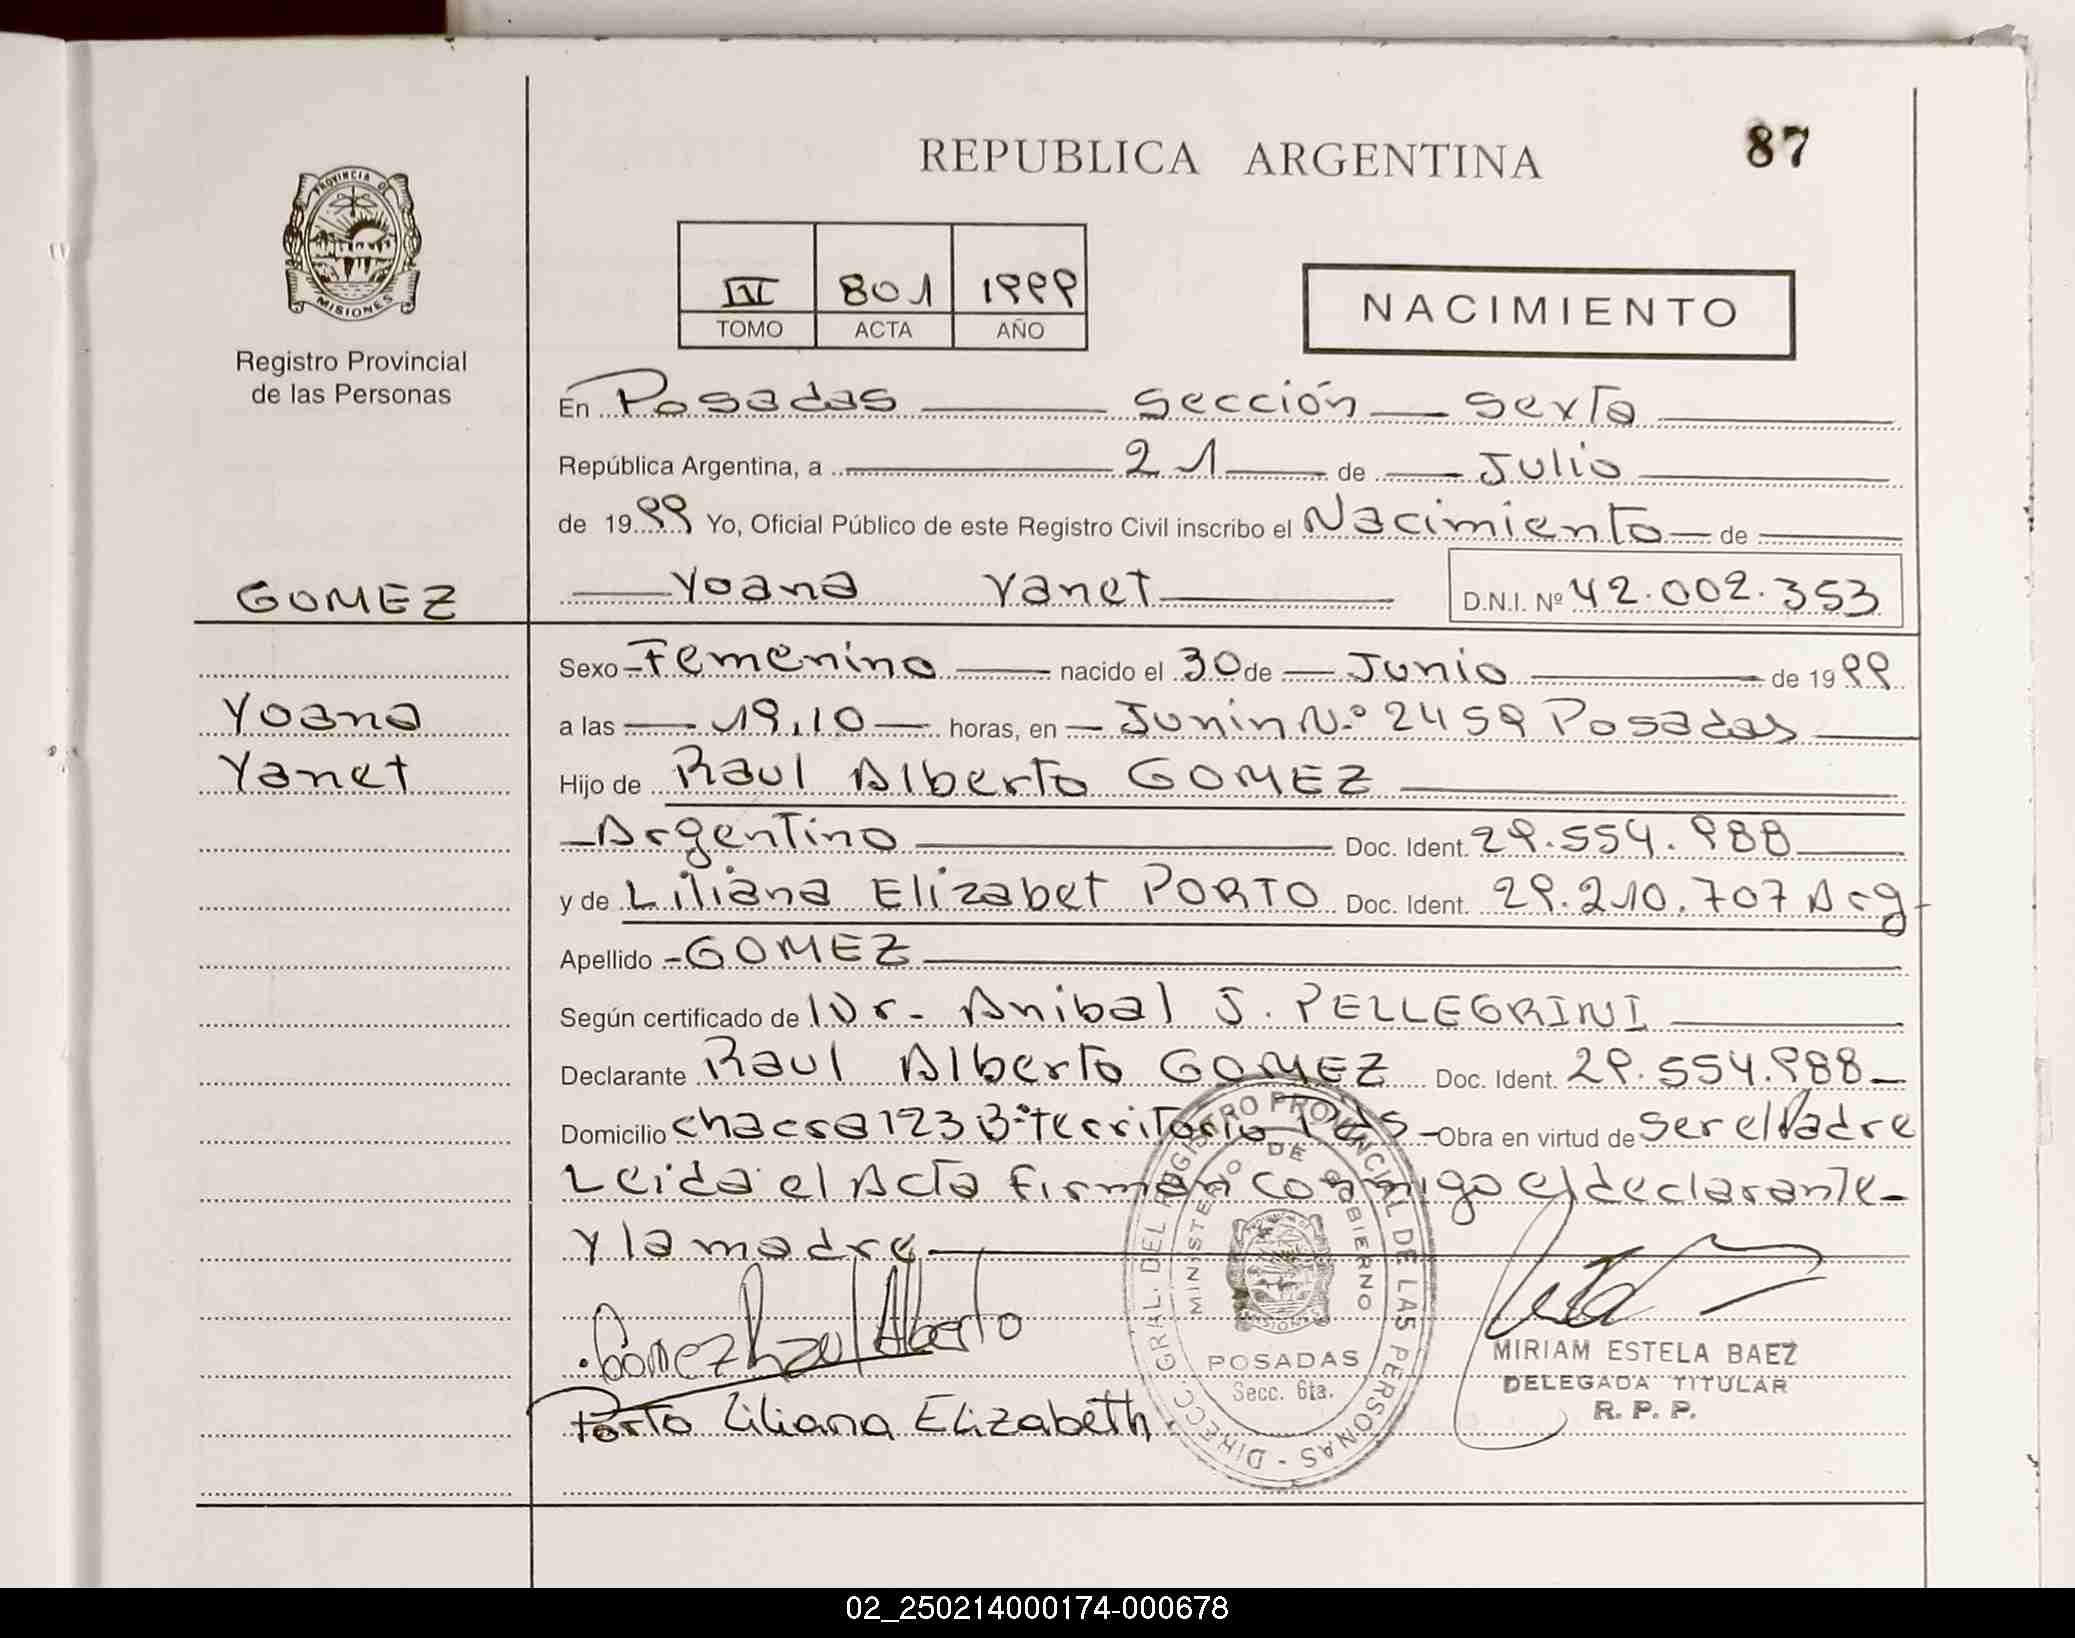 87
REPUBLICA ARGENTINA
PROVINCIA DE
MISIONES
Registro Provincial
de las Personas
IV 801 1999
TOMO ACTA AÑO
NACIMIENTO
En Posadas sección sexta
República Argentina, a 21 de Julio
de 1999 Yo, Oficial Público de este Registro Civil inscribo el Nacimiento de
GOMEZ
Yoana Yanet D.N.I. Nº 42.002.353
Sexo Femenino nacido el 30 de Junio de 1999
Yoana
a las 19,10 horas, en Junin N.º 2459 Posadas
Yanet
Hijo de Raul Alberto GOMEZ
Argentino Doc. Ident. 29.554.988
y de Liliana Elizabet PORTO Doc. Ident. 29.210.707 Arg
Apellido GOMEZ
Según certificado de Dr. Anibal J. PELLEGRINI
Declarante Raul Alberto GOMEZ Doc. Ident. 29.554.988
Domicilio chacra 123 Bº territorio Pdas Obra en virtud de ser el Padre
Leida el Acta firman conmigo el declarante
y la madre
Gomez Raul Alberto
Porto Liliana Elizabeth
DIRECC. GRAL. DEL REGISTRO PROVINCIAL DE LAS PERSONAS -
MINISTERIO DE GOBIERNO
MISIONES
POSADAS
Secc. 6ta.
MIRIAM ESTELA BAEZ
DELEGADA TITULAR
R. P. P.
02_250214000174-000678